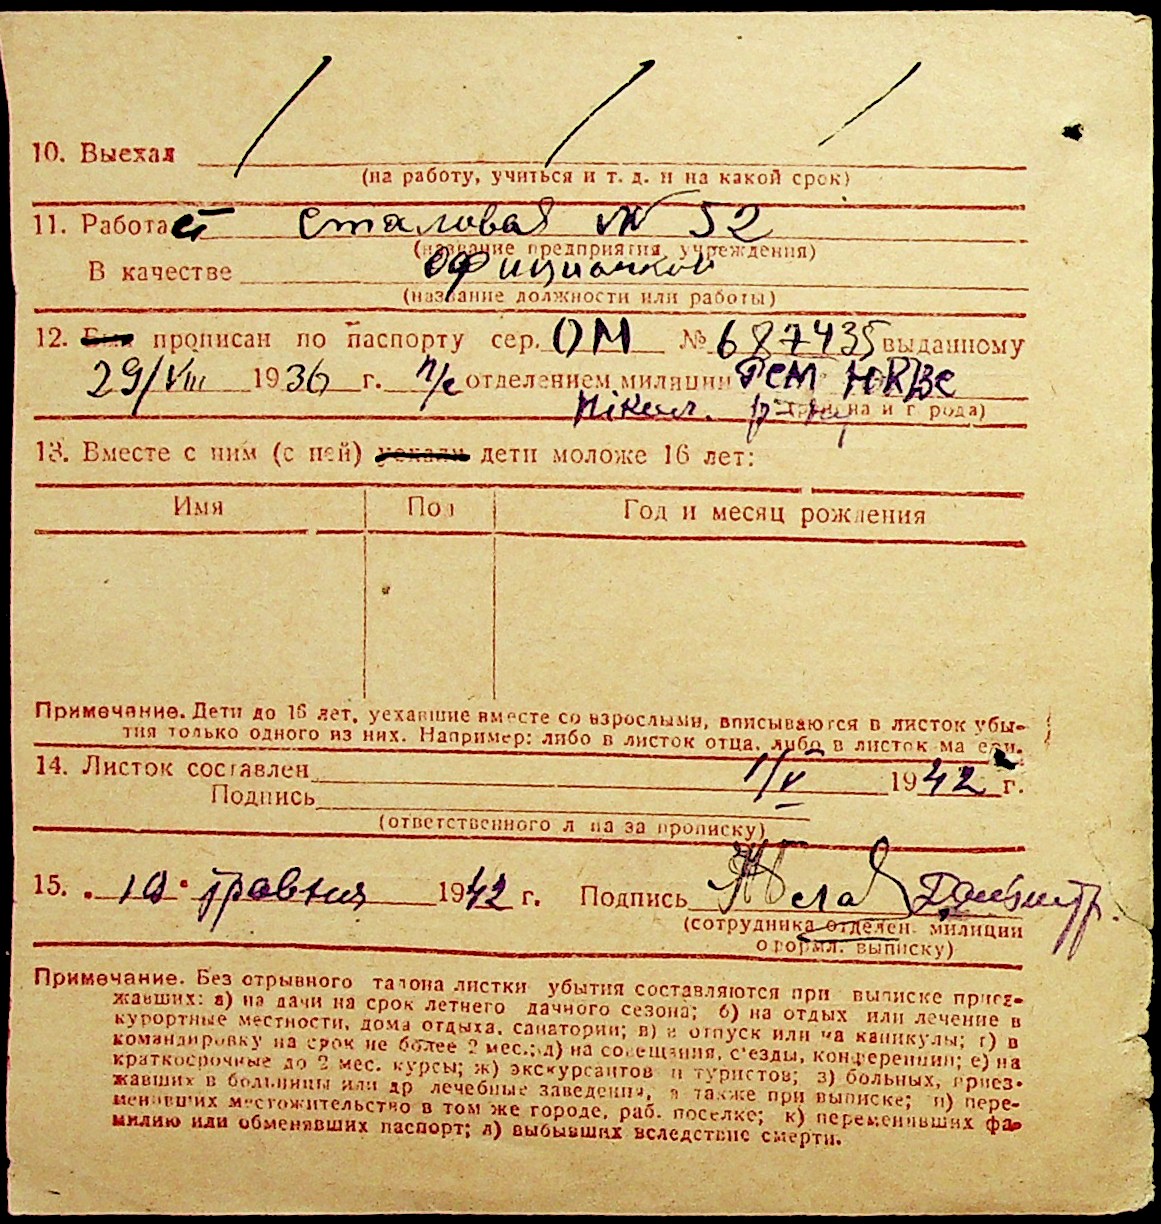 10. Выехал
(на работу, учиться и т. д. и на какой срок)
11. Работает сталовая № 52
(название предприятия, учреждения)
В качестве официанкой
(название должности или работы)
12. Был прописан по паспорту сер. ОМ № 687435 выданному
29/VIII 1936 г. п/с отделением милиции РСМ НКВС
Нікол.
(района и города)
13. Вместе с ним (с ней) уехали дети моложе 16 лет:
Имя Пол Год и месяц рождения
Примечание. Дети до 16 лет, уехавшие вместе со взрослыми, вписываются в листок убы-
тия только одного из них. Например: либо в листок отца, либо в листок матери.
14. Листок составлен 1/V 1942 г.
Подпись
(ответственного лица за прописку)
15. 10 травня 1942 г. Подпись
(сотрудника отделен. милиции
оформл. выписку)
Примечание. Без отрывного талона листки убытия составляются при выписке приез-
жавших: а) на дачи на срок летнего дачного сезона; б) на отдых или лечение в
курортные местности, дома отдыха, санатории; в) в отпуск или на каникулы; г) в
командировку на срок не более 2 мес.; д) на совещания, с'езды, конференции; е) на
краткосрочные до 2 мес. курсы; ж) экскурсантов и туристов; з) больных, приез-
жавших в больницы или др лечебные заведения, а также при выписке; и) пере-
менивших местожительство в том же городе, раб. поселке; к) переменивших фа-
милию или обменявших паспорт; л) выбывших вследствие смерти.